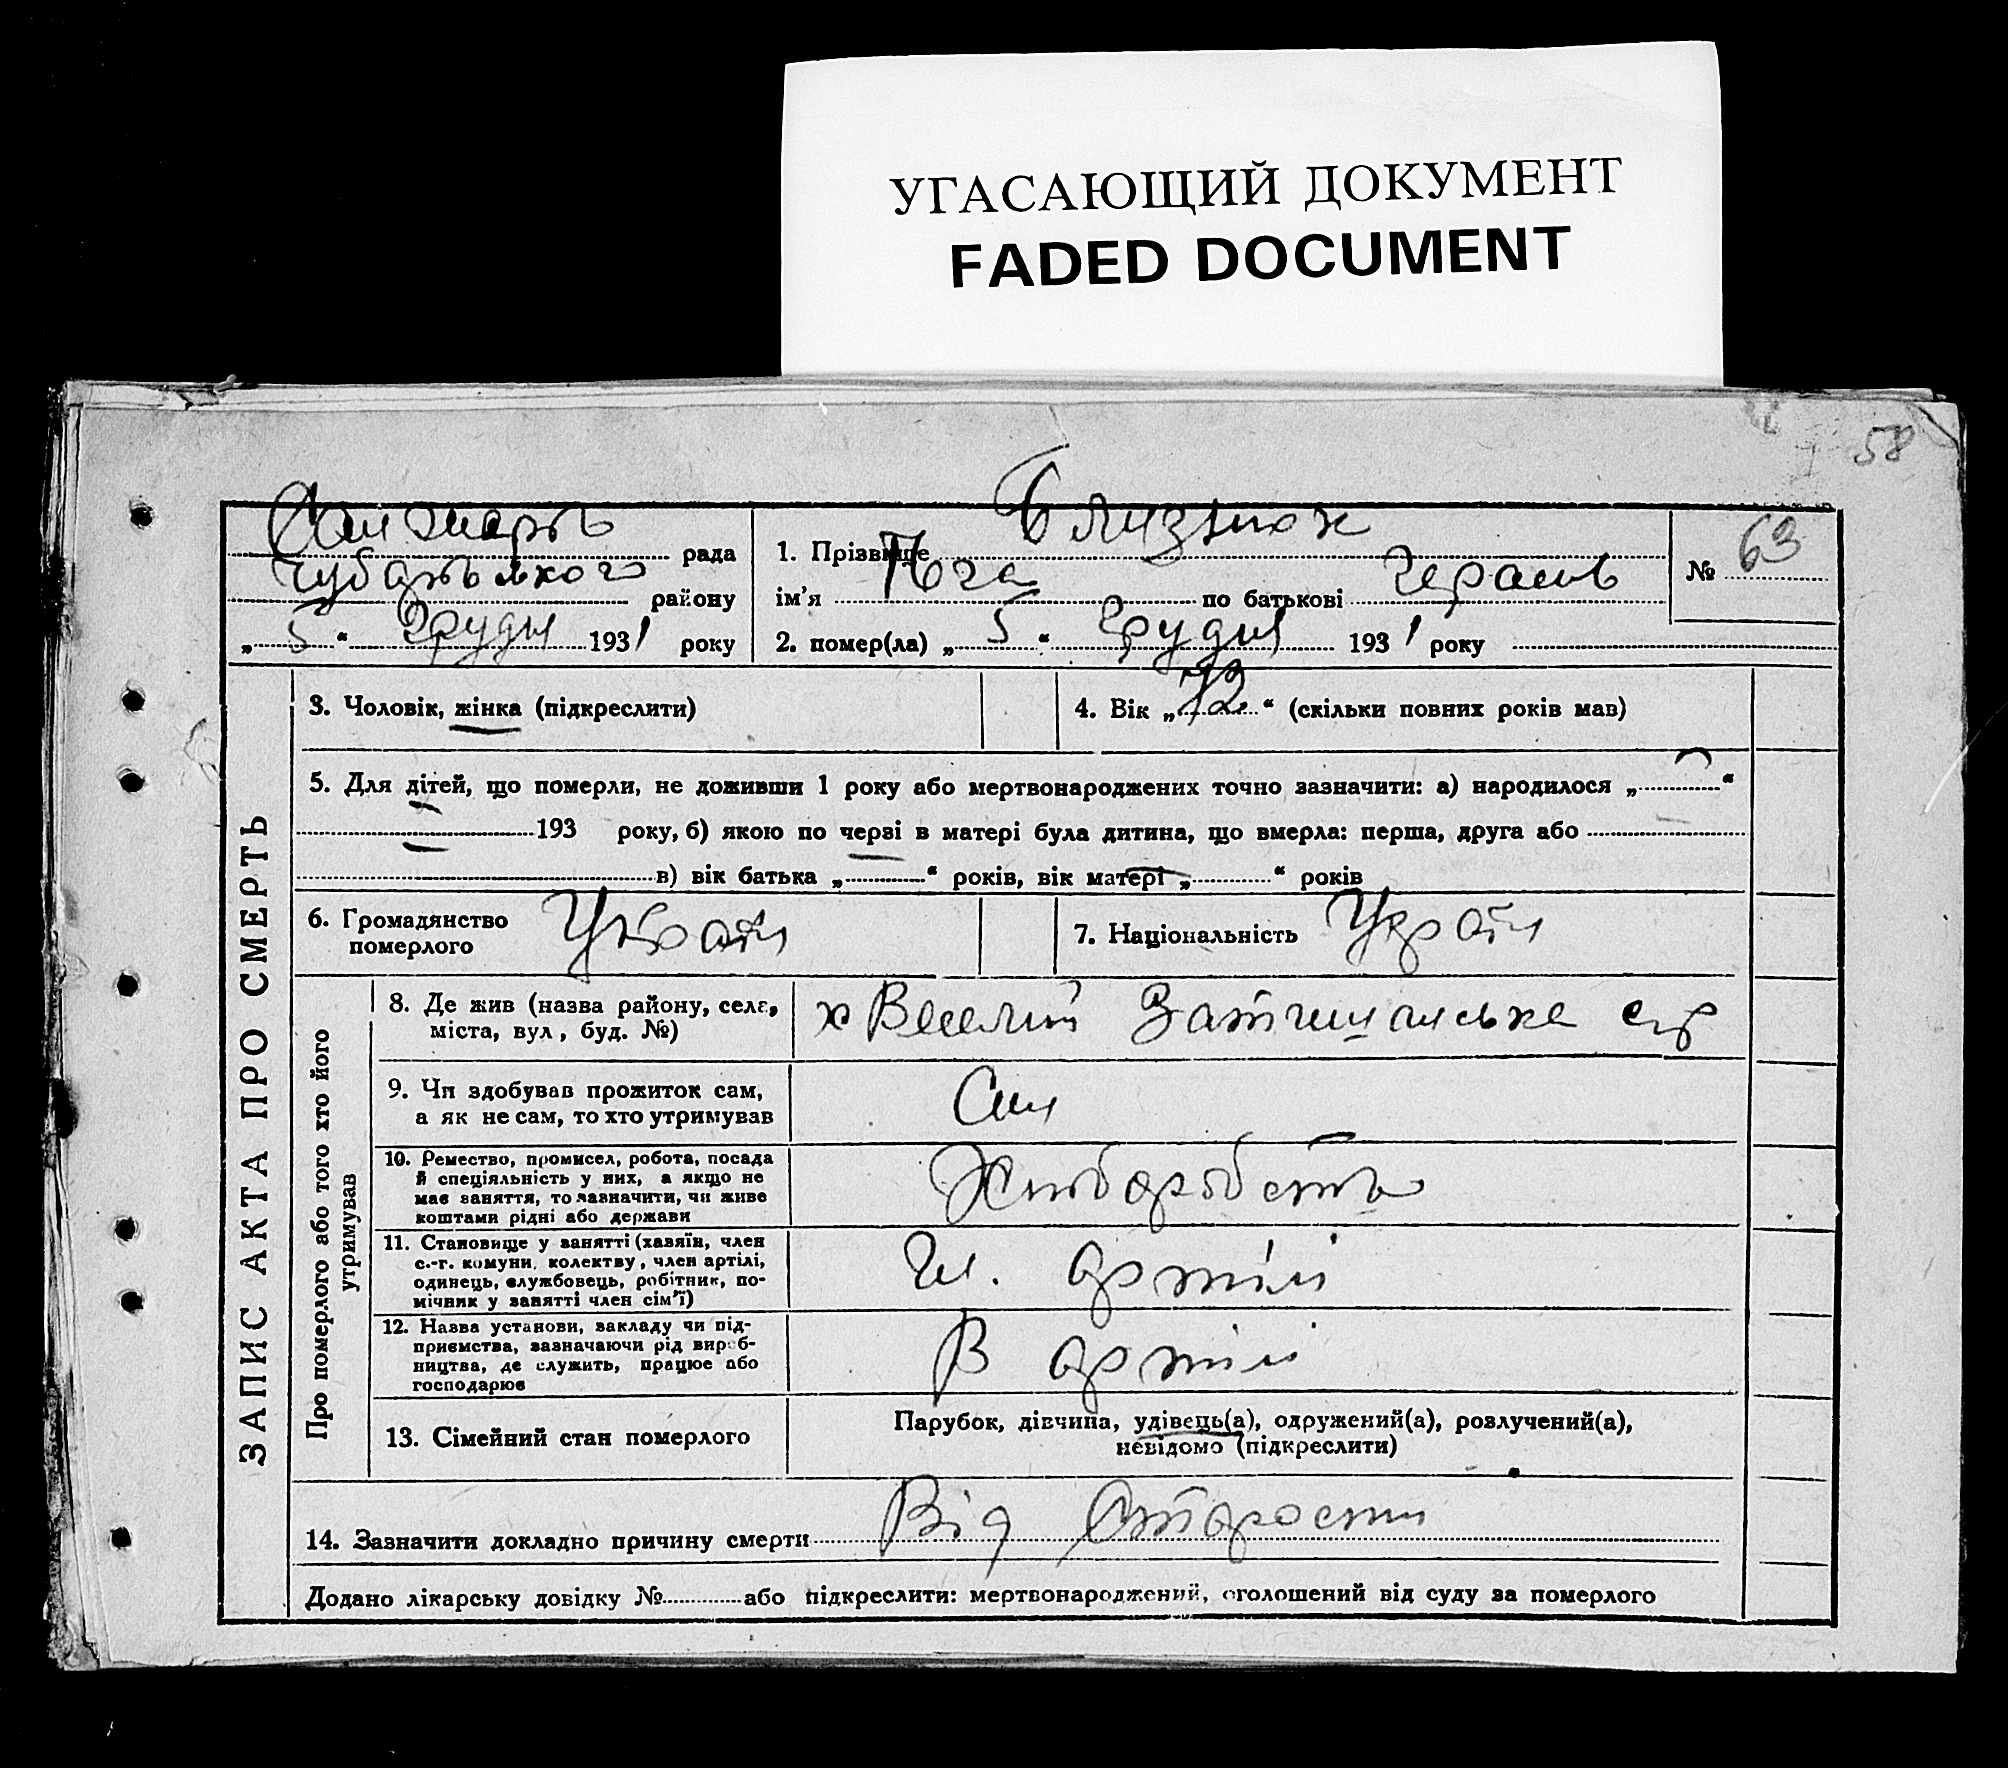 УГАСАЮЩИЙ ДОКУМЕНТ
FADED DOCUMENT
58
рада
району
„ 5 “ Грудня 1931 року
1. Прізвище Близнюк
ім’я по батькові Герасим
2. помер(ла) „ 5 “ Грудня 1931 року
№ 63
ЗАПИС АКТА ПРО СМЕРТЬ
3. Чоловік, жінка (підкреслити)
4. Вік „ 72 “ (скільки повних років мав)
5. Для дітей, що померли, не доживши 1 року або мертвонароджених точно зазначити: а) народилося „ “
193 року, б) якою по черзі в матері була дитина, що вмерла: перша, друга або
в) вік батька „ “ років, вік матері „ “ років
6. Громадянство
померлого Україн
7. Національність Україн
Про померлого або того хто його
утримував
8. Де жив (назва району, села,
міста, вул, буд. №)
х Веселий
9. Чи здобував прожиток сам,
а як не сам, то хто утримував
Син
10. Ремество, промисел, робота, посада
й спеціяльність у них, а якщо не
має заняття, то зазначити, чи живе
коштами рідні або держави
11. Становище у занятті (хазяїн, член
с.-г. комуни, колектву, член артілі,
одинець, службовець, робітник, по-
мічник у занятті член сім’ї)
Чл. артілі
12. Назва установи, закладу чи під-
приємства, зазначаючи рід вироб-
ництва, де служить, працює або
господарює
В артілі
13. Сімейний стан померлого
Парубок, дівчина, удівець(а), одружений(а), розлучений(а),
невідомо (підкреслити)
14. Зазначити докладно причину смерти Від старости
Додано лікарську довідку № або підкреслити: мертвонароджений, оголошений від суду за померлого